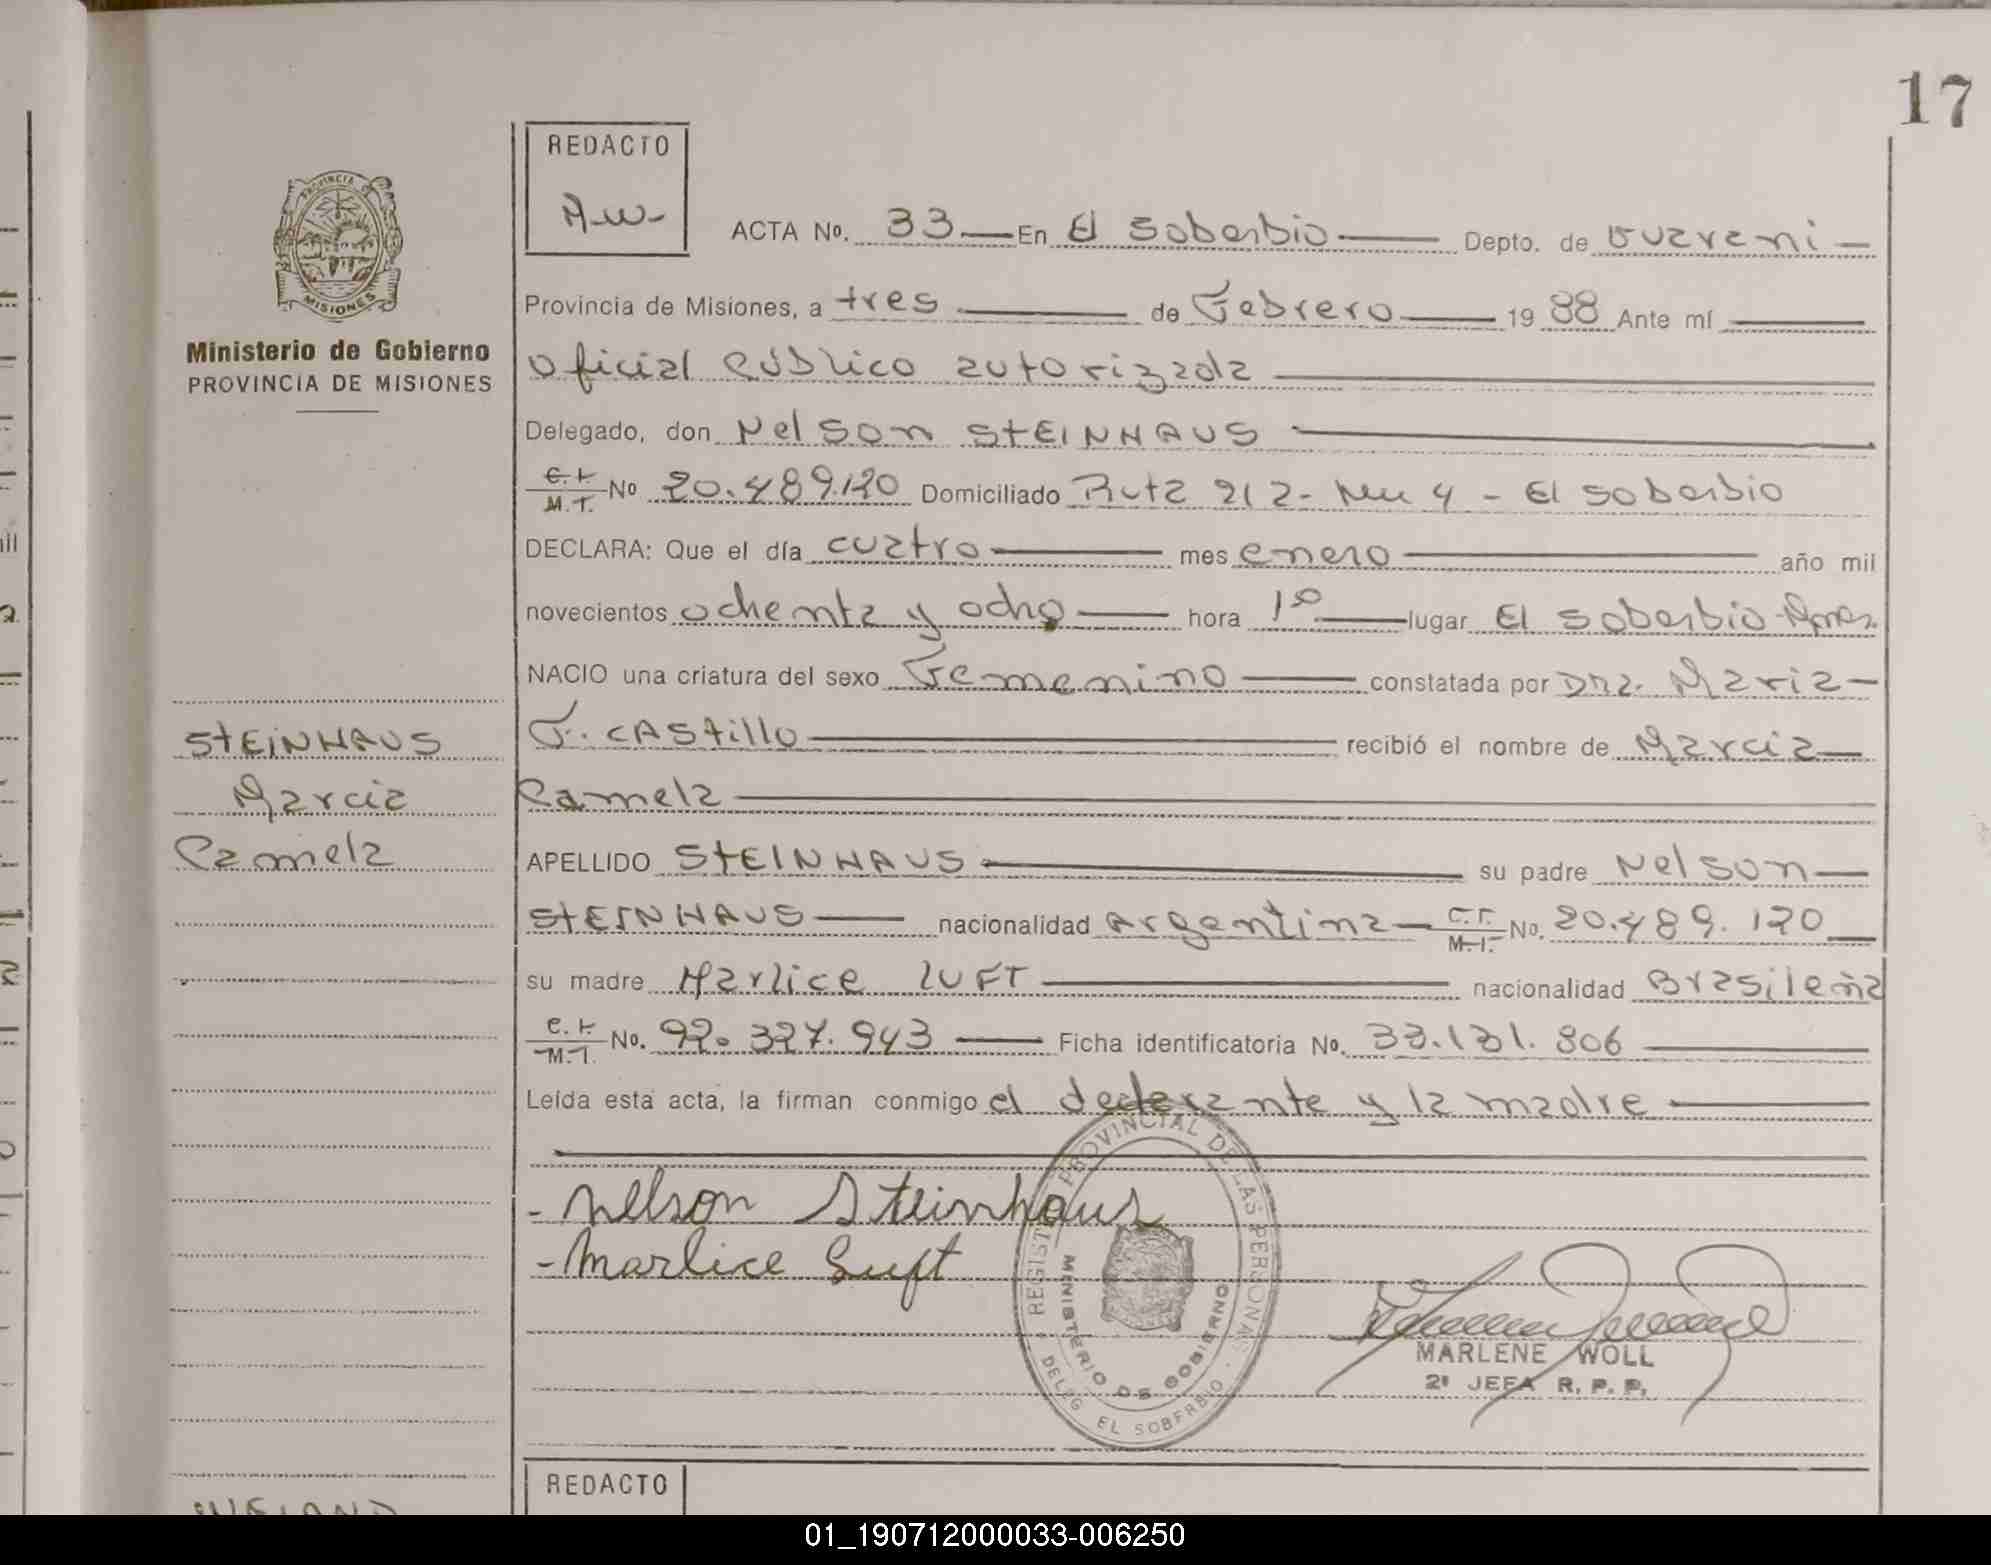 17
PROVINCIA DE
MISIONES
Ministerio de Gobierno
PROVINCIA DE MISIONES
STEINHAUS
Marcia
Camela
REDACTO
A.W-
ACTA No. 33 En El Soberbio Depto. de Guarani
Provincia de Misiones, a tres de Febrero 1988 Ante mí
Oficial Público autorizada
Delegado, don Nelson STEINHAUS
C.I. M.I. No 20.489.120 Domiciliado Ruta 212- Km 4 - El Soberbio
DECLARA: Que el día cuatro mes enero año mil
novecientos ochenta y ocho hora 1º lugar El Soberbio-Mnes.
NACIO una criatura del sexo Femenino constatada por Dra. Maria
F. CAStillo recibió el nombre de Marcia
Camela
APELLIDO STEINHAUS su padre Nelson
STEINHAUS nacionalidad Argentina C.I. M.I. No. 20.489.120
su madre Marlice LUFT nacionalidad Brasileña
C.I. M.I. No. 92.327.943 Ficha identificatoria No. 33.131.806
Leída esta acta, la firman conmigo el declarante y la madre
- Nelson Steinhaus
- Marlice Luft
REGIST PROVINCIAL DE LAS PERSONAS
MINISTERIO DE GOBIERNO
DELEG EL SOBERBIO
MARLENE WOLL
2ª JEFA R. P. P.
REDACTO
01_190712000033-006250